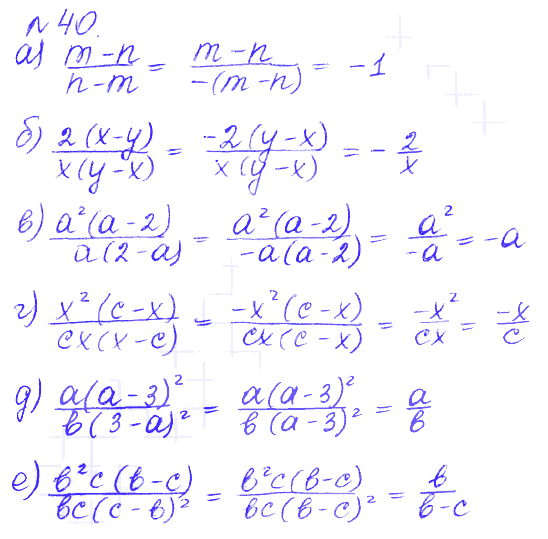 № 40.
а) (m-n)/(n-m) = (m-n)/(-(m-n)) = -1
б) 2(x-y)/(x(y-x)) = -2(y-x)/(x(y-x)) = -2/x
в) a²(a-2)/(a(2-a)) = a²(a-2)/(-a(a-2)) = a²/(-a) = -a
г) x²(c-x)/(cx(x-c)) = -x²(c-x)/(cx(c-x)) = -x²/(cx) = -x/c
д) a(a-3)²/(в(3-a)²) = a(a-3)²/(в(a-3)²) = a/в
е) в²c(в-c)/(вc(c-в)²) = в²c(в-c)/(вc(в-c)²) = в/(в-c)